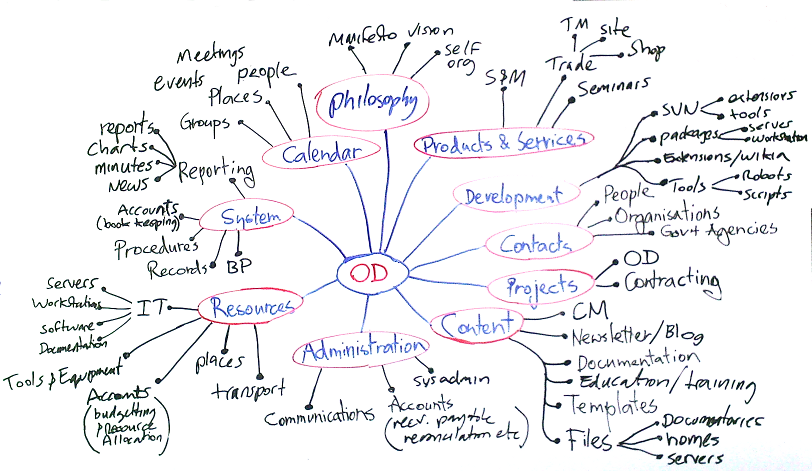 OD
Philosophy
Manifesto
vision
self
org
Products & Services
S&M
Trade
TM
site
Shop
Seminars
Development
SVN
extensions
tools
packages
server
workstation
Extensions/wikia
Tools
Robots
Scripts
Contacts
People
Organisations
Gov't Agencies
Projects
OD
Contracting
Content
CM
Newsletter/Blog
Documentation
Education/training
Templates
Files
Documentaries
homes
servers
Administration
sysadmin
Accounts
(recv. payable
reconculation etc)
Communications
Resources
IT
Servers
Workstations
software
Documentation
Tools & Equipment
Accounts
(budgetting
& resource
Allocation)
places
transport
System
Reporting
reports
Charts
minutes
News
Accounts
(book keeping)
Procedures
Records
BP
Calendar
Meetings
events
people
Places
Groups